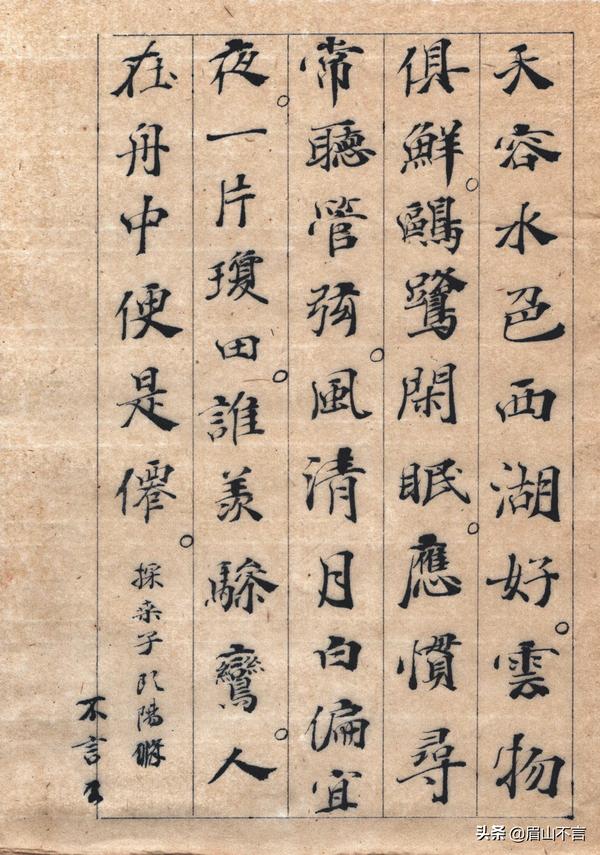 天容水色西湖好。雲物
俱鮮。鷗鷺閑眠。應慣尋
常聽管弦。風清月白偏宜
夜。一片瓊田。誰羨驂鸞。人
在舟中便是僊。
採桑子 欧陽脩
不言
头条 @眉山不言